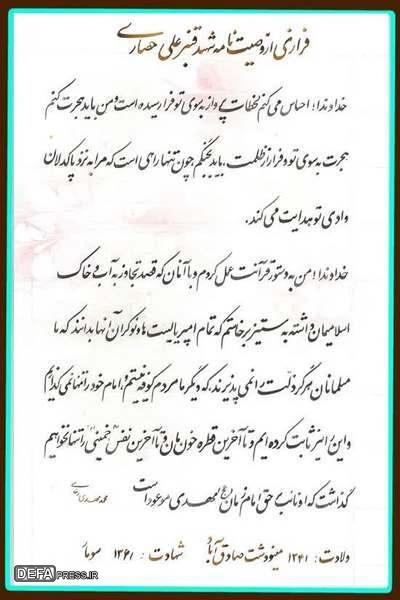 فرازی از وصیت نامه شهید قنبر علی حصاری
خداوندا؛ احساس می کنم لحظات پرواز به سوی تو فرا رسیده است و من باید هجرت کنم
هجرت به سوی تو و فرار از ظلمت، باید بجنگم چون تنها راهی است که مرا به نزد پاکدلان
وادی تو هدایت می کند.
خداوندا؛ من به دستور قرآنت عمل کردم و با آنان که قصد تجاوز به آب و خاک
اسلامیمان داشته به ستیز برخاستم که تمام امپریالیست ها و نوکران آنها بدانند که ما
مسلمانان هرگز ذلّت را نمی پذیرند، که دیگر ما مردم کوفه نیستیم، امام خود را تنها نمی گذاریم
و این را نیز ثابت کرده ایم و تا آخرین قطره خون مان و تا آخرین نفس "خمینی" را تنها نخواهیم
گذاشت که او نائب بر حق امام زمان (عج) مهدی موعود است
ولادت: ۱۳۴۱ مینودشت صادق آباد شهادت: ۱۳۶۱ سومار
DEFAPRESS.IR